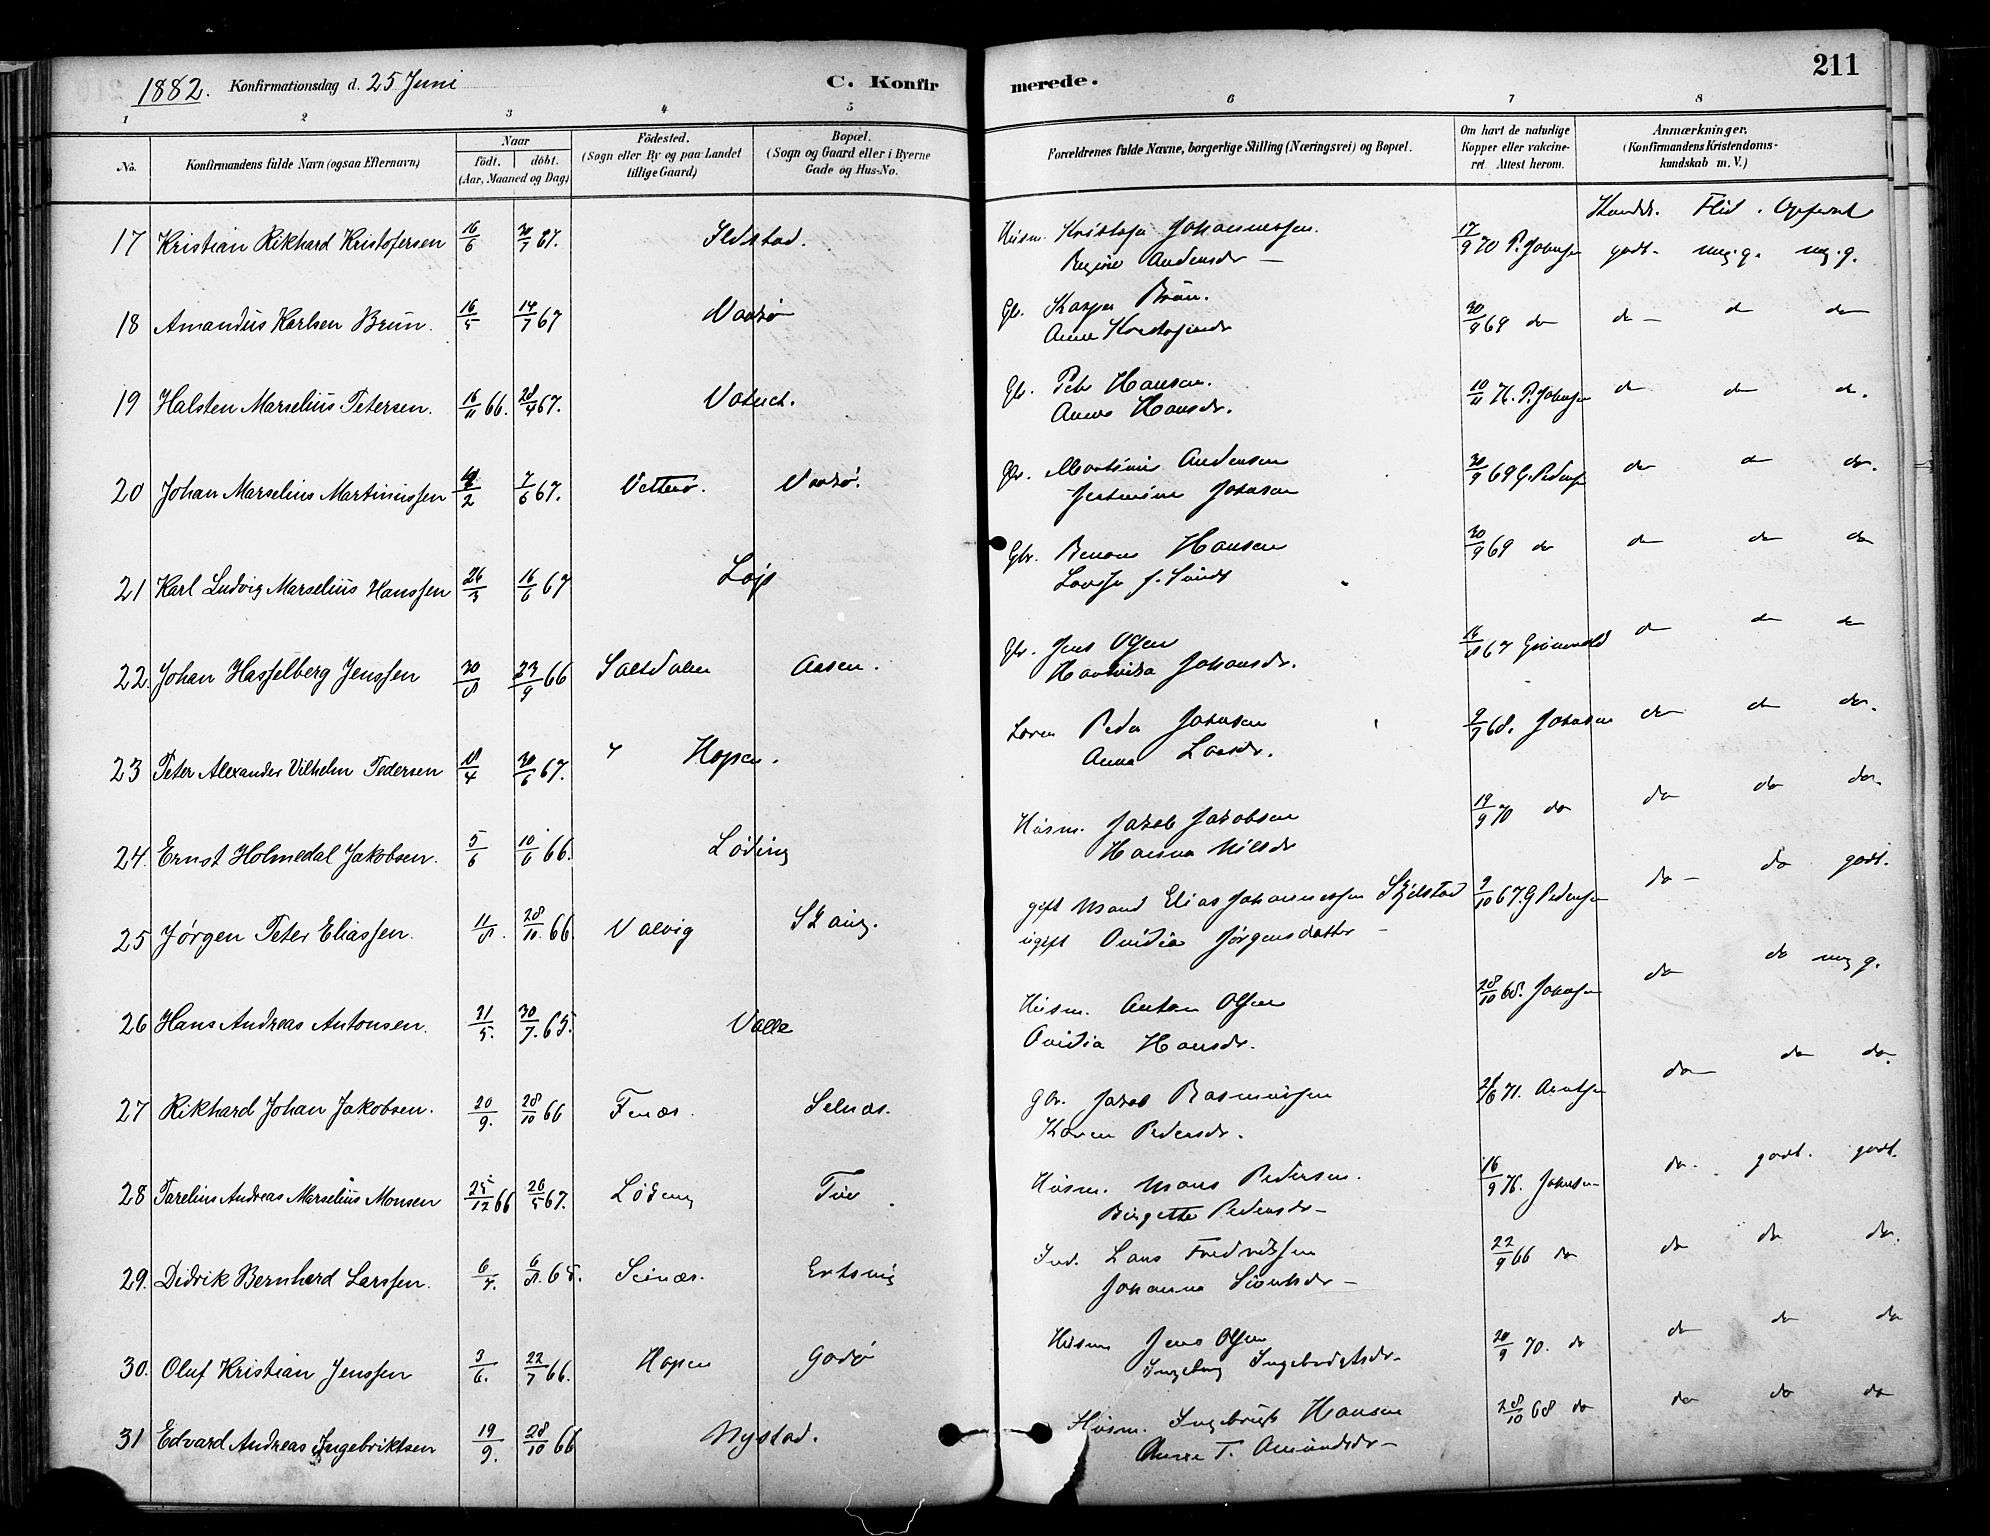 1882. Konfirmationsdag d. 25 Juni
C. Konfirmerede.
211
1 2 3 4 5 6 7 8
No.
Konfirmandens fulde Navn (ogsaa Efternavn)
Naar
födt. döbt.
(Aar, Maaned og Dag)
Födested.
(Sogn eller By og paa Landet
tillige Gaard)
Bopæl.
(Sogn og Gaard eller i Byerne
Gade og Hus-No.
Forældrenes fulde Navne, borgerlige Stilling (Næringsvei) og Bopæl.
Om havt de naturlige
Kopper eller vakcine-
ret. Attest herom.
Anmærkninger.
(Konfirmandens Kristendoms-
kundskab m. V.)
Kundsk. Flid.
17 Kristian Rikhard Kristofersen 16/6 30/7 67. Ildstad. Husm. Kristofer Johannessen. 17/9 70 P. Johnsen godt. meg. g. meg. g.
Regine Andersdr —
18 Amandus Karlsen Brun. 16/5 14/7 67 Gbr. Kasper Brun. 30/9 69 do do — do do
Anne
19 Halsten Marselius Petersen. 16/11 66. 28/4 67. Gbr. Peter Hansen. 10/11 76. P. Johnsen do do do.
Anne Hansdr.
20 Johan Marselius Martinussen 2 7/6 67. Vetterø. Gbr. Martinus Andersen 30/9 69 G. Pedersen do do do.
Johnsen
21 Karl Ludvig Marselius Hanssen 26/3 16/6 67 Gbr. Hansen 30/9 69 do do do do
22. Johan Hasselberg Jenssen 30/8 23/9 66 Saltdalen Aasen. Gbr. Jens Olsen 16/8 67 Grønvold do do do
Johansdr.
23 Peter Alexander Vilhelm Pedersen 18/4 30/6 67. " Hopen. Peder Johnsen 9/7 68. Johnsen do do do.
Anna Larsdr.
24. Ernst Holmedal Jakobsen. 5/6 10/6 66. Løding Husm. Jakob Jakobsen 19/9 70 do do do do.
Hanna Nilsdr
25 Jørgen Peter Eliassen. 11/8. 28/10. 66. Valvig Skaug. gift Mand Elias Johannessen Skjelstad 9/10 67. G Pedersen do — do godt.
ugift Ovidia Jørgensdatter —
26 Hans Andreas Antonsen. 31/5. 30/7. 65. Valle Husm. Anton Olsen 28/10 68. Johnsen do do meg g.
Ovidia Hansdr.
27 Rikhard Johan Jakobsen. 20/9. 28/10 66 Fenæs. Selnæs. Gbr. Jakob Rasmussen 71. Arntsen do — do do.
Karen Pedersdr.
28 Parelius Andreas Marselius Monsen 25/12 66 26/5 67. Løding Tuv Husm. Mons Pedersen. 16/9 76. Johnsen do. godt. godt.
Birgette Pedersdr —
29. Didrik Bernhard Larssen. 6/4. 6/8. 65. Seinæs. Ertsvig Ind. Lars Fredriksen 22/9 66 do do do do.
Johanna
30. Oluf Kristian Jenssen 3/6. 22/7 66. Hopen Godø Husm Jens Olsen 20/9 70. do do do do
Ingeborg Ingebrigtsdr.
31 Edvard Andreas Ingebriktsen 19/9. 28/10 66 Nystad. Husm. Ingebrigt Hansen 28/10 68 do do do do
T. Amundsdr —